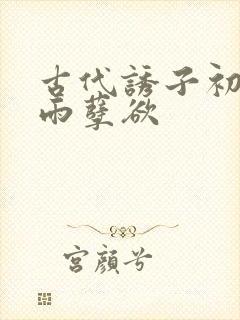 古代誘子初
雨孽欲
宮顏兮